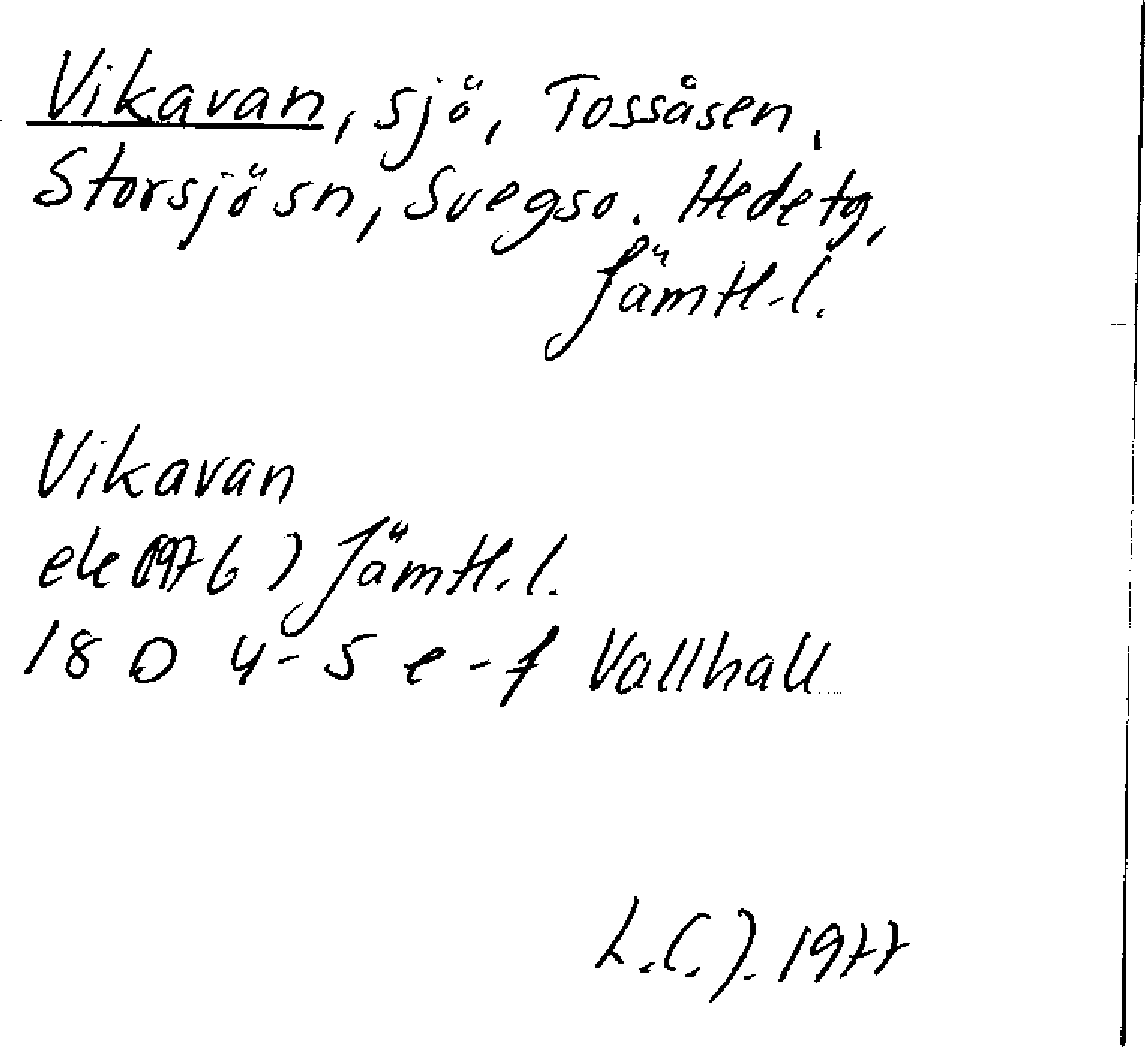 Vikavan, sjö, Tossåsen,
Storsjö sn, Svegs so. Hede tg,
Jämtl.l.
Vikavan
ek (1976) Jämtl.l.
18 D 4-5 e-f Vallhall
L.C.J. 1977